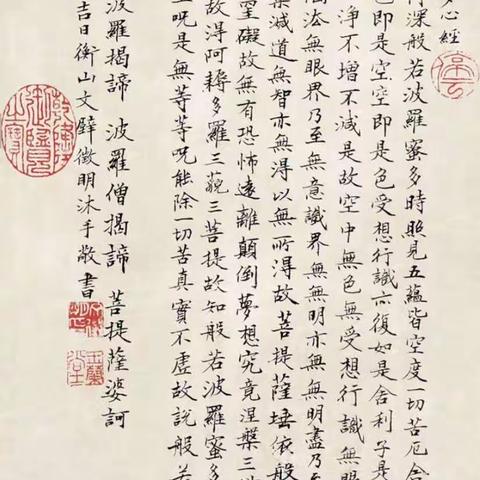 心經
深般若波羅蜜多時照見五蘊皆空度一切苦厄舍
色即是空空即是色受想行識亦復如是舍利子是
淨不增不減是故空中無色無受想行識無眼
法無眼界乃至無意識界無無明亦無無明盡乃至
滅道無智亦無得以無所得故菩提薩埵依般
罣礙故無有恐怖遠離顛倒夢想究竟涅槃三世
故得阿耨多羅三藐三菩提故知般若波羅蜜多
上呪是無等等呪能除一切苦真實不虛故說般若
波羅揭諦 波羅僧揭諦 菩提薩婆訶
吉日衡山文璧徵明沐手敬書
乾隆御覽之寶